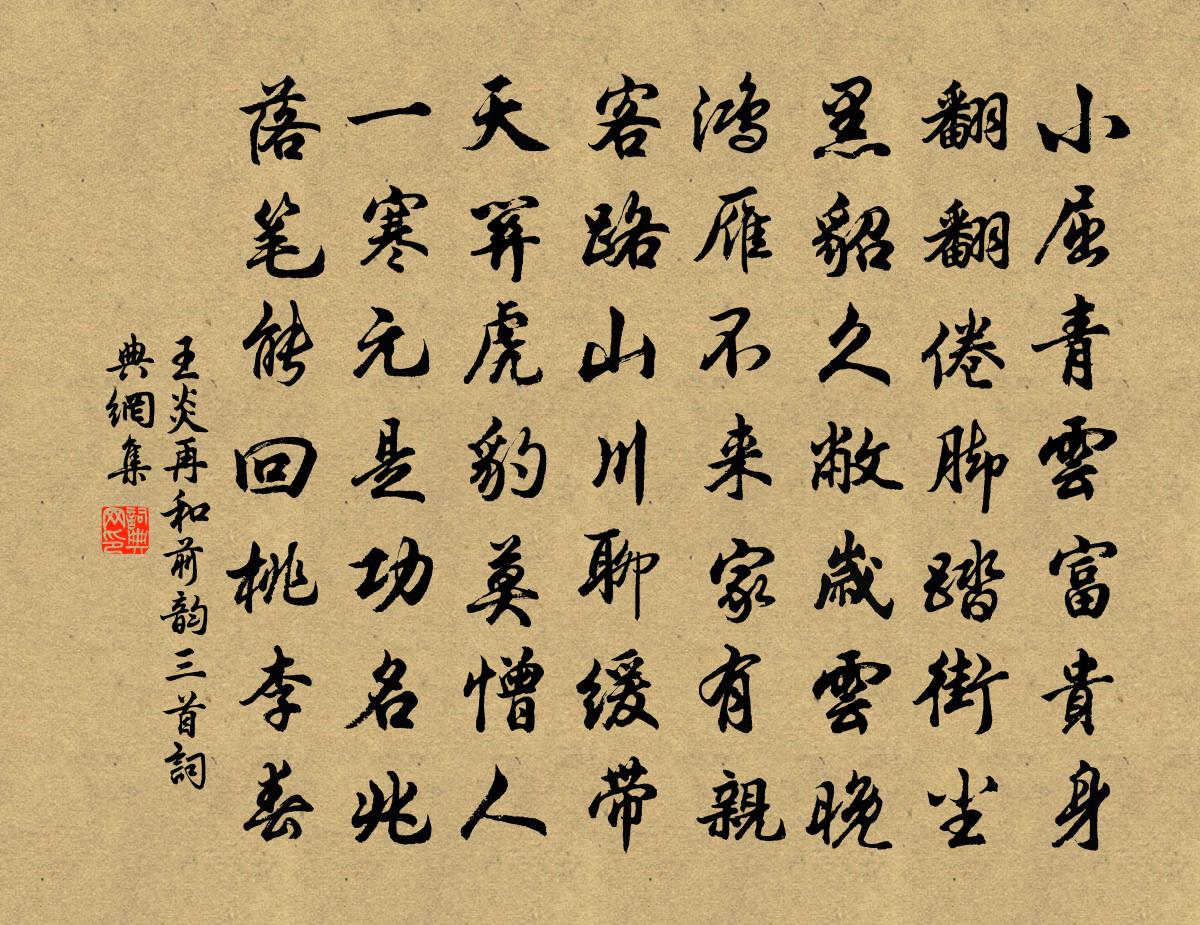 小屈青雲富貴身
翻翻倦脚踏街尘
黑貂久敝歲雲晚
鴻雁不来家有親
客路山川聊缓带
天関虎豹莫憎人
一寒元是功名兆
落笔能回桃李春
王炎再和前韵三首詞
典網集
詞典
网印